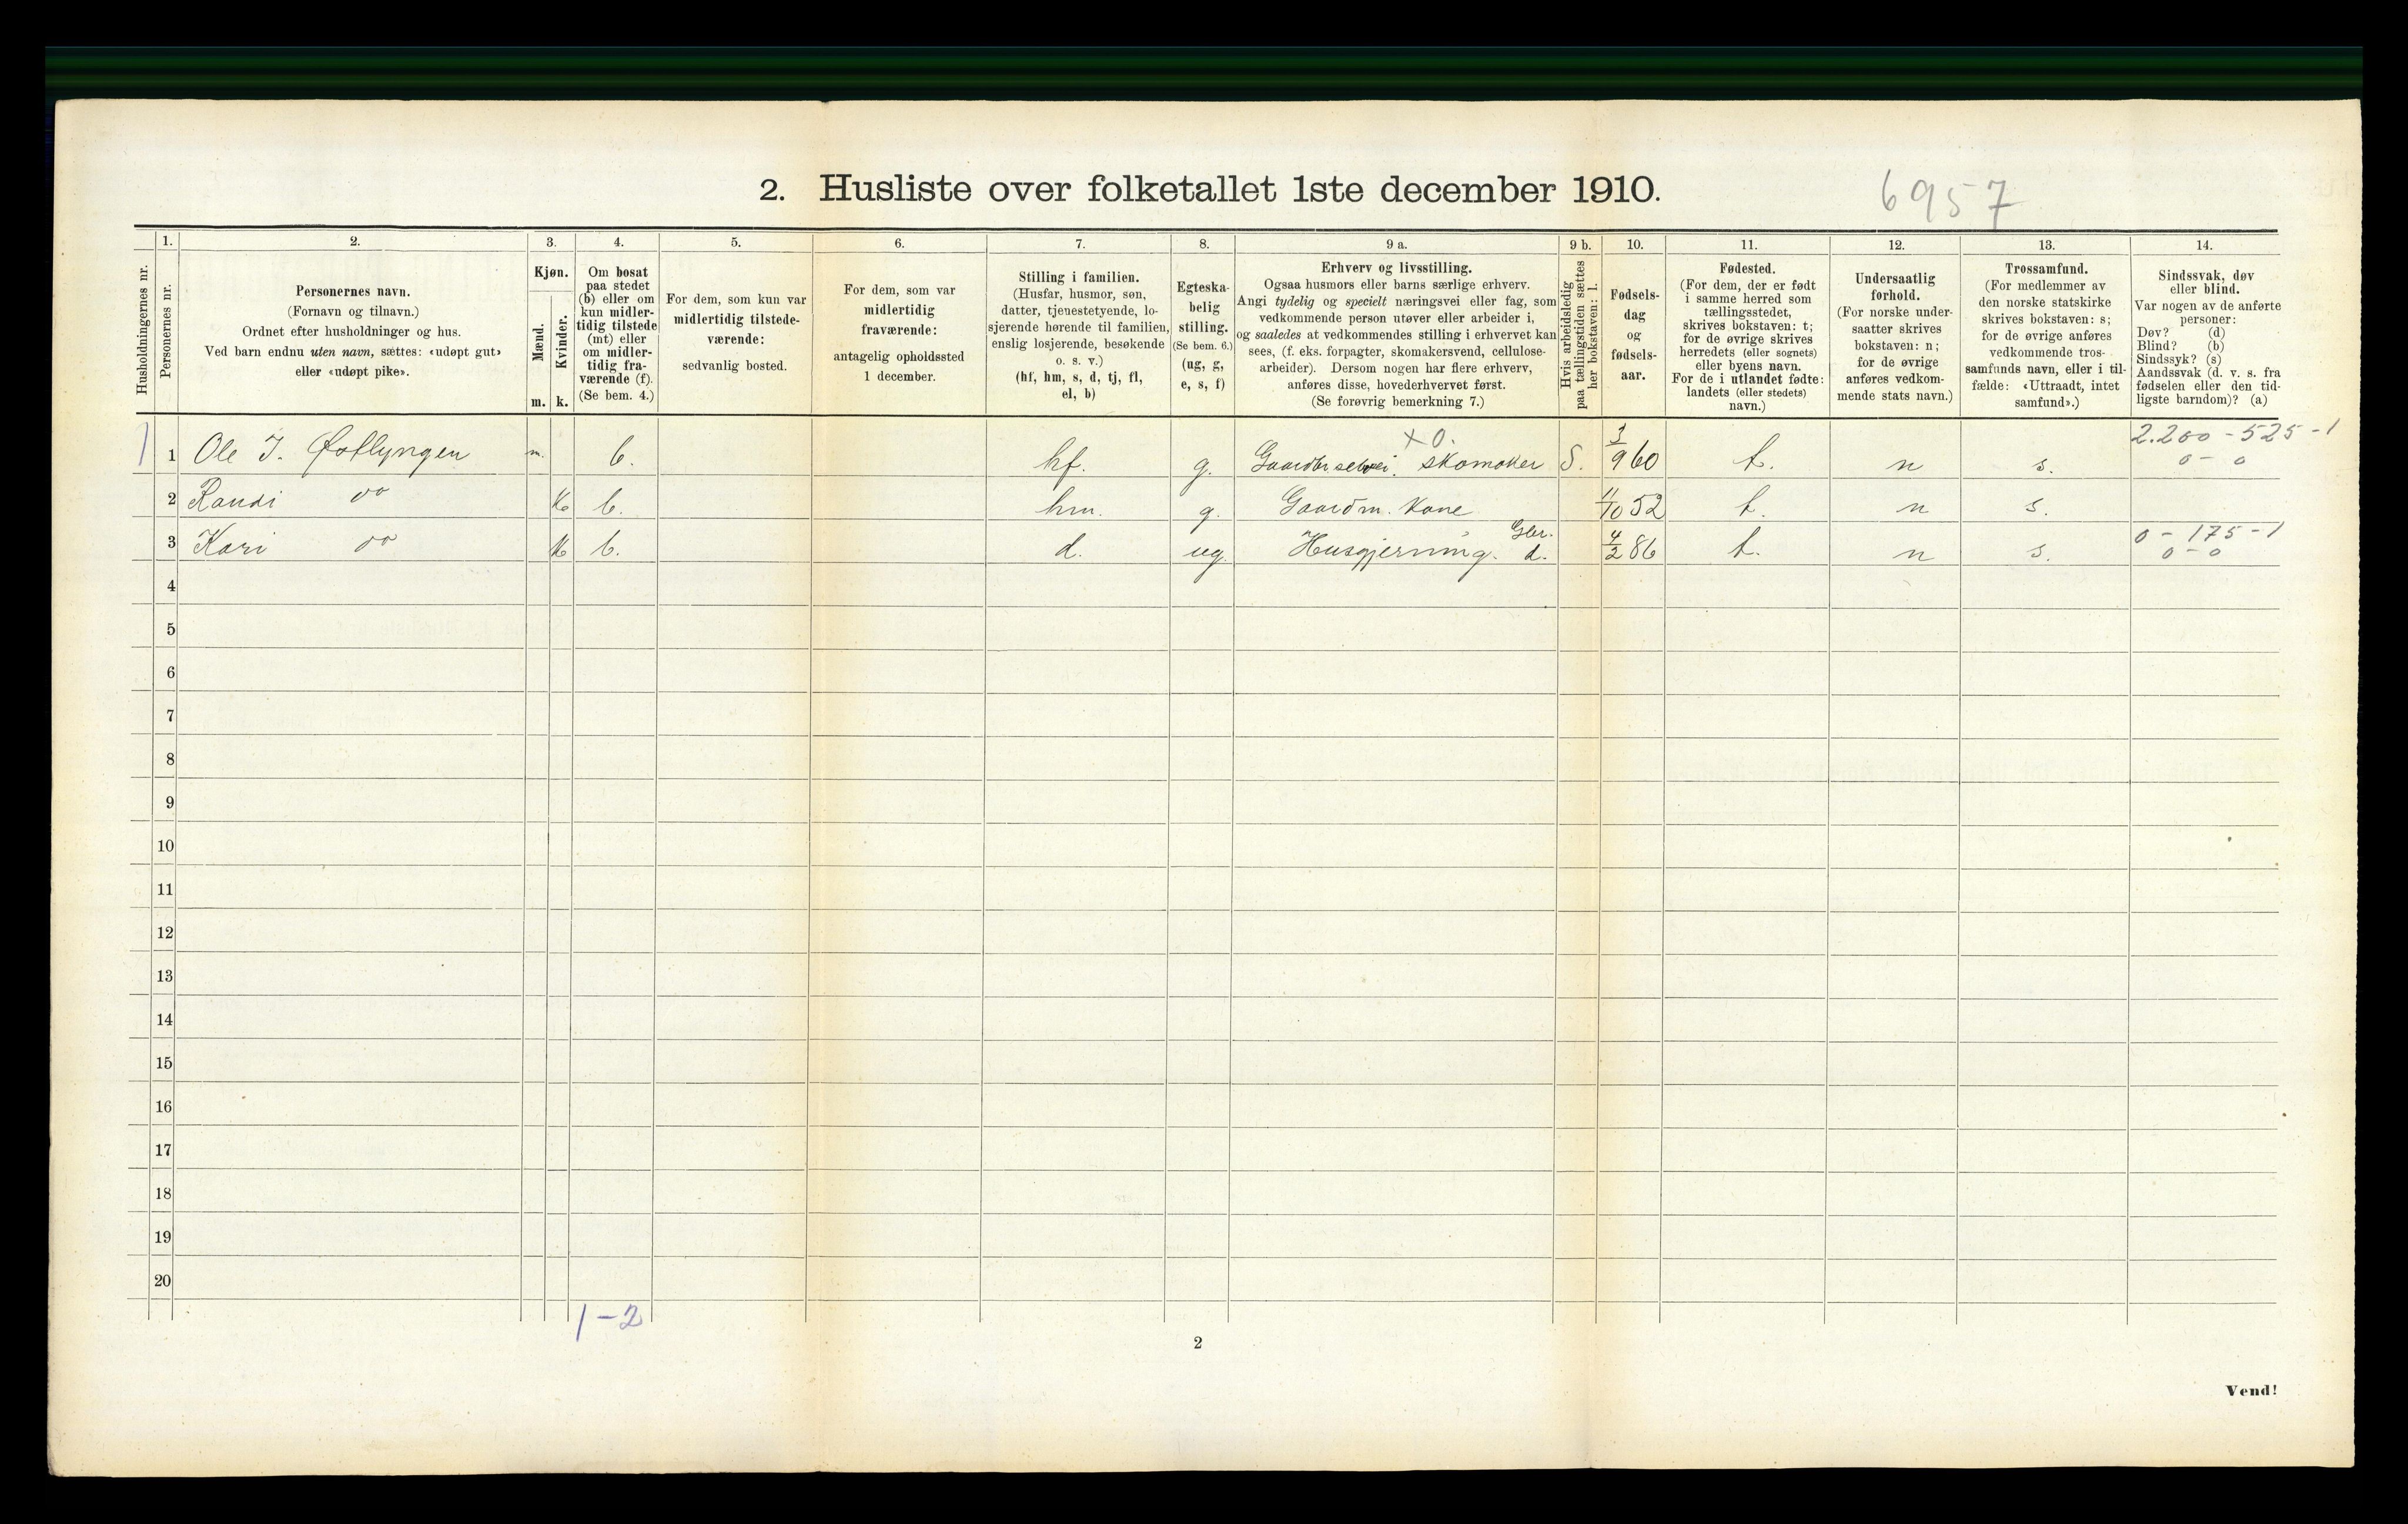 2. Husliste over folketallet 1ste december 1910.
6957
Husholdningernes nr.
1.
Personernes nr.
2.
Personernes navn.
(Fornavn og tilnavn.)
Ordnet efter husholdninger og hus.
Ved barn endnu uten navn, sættes: «udøpt gut»
eller «udøpt pike».
3.
Kjøn.
Mænd.
Kvinder.
m. k.
4.
Om bosat
paa stedet
(b) eller om
kun midler-
tidig tilstede
(mt) eller
om midler-
tidig fra-
værende (f).
(Se bem. 4.)
5.
For dem, som kun var
midlertidig tilstede-
værende:
sedvanlig bosted.
6.
For dem, som var
midlertidig
fraværende:
antagelig opholdssted
1 december.
7.
Stilling i familien.
(Husfar, husmor, søn,
datter, tjenestetyende, lo-
sjerende hørende til familien,
enslig losjerende, besøkende
o. s. v.)
(hf, hm, s, d, tj, fl,
el, b)
8.
Egteska-
belig
stilling.
(Se bem. 6.)
(ug, g,
e, s, f)
9 a.
Erhverv og livsstilling.
Ogsaa husmors eller barns særlige erhverv.
Angi tydelig og specielt næringsvei eller fag, som
vedkommende person utøver eller arbeider i,
og saaledes at vedkommendes stilling i erhvervet kan
sees, (f. eks. forpagter, skomakersvend, cellulose-
arbeider). Dersom nogen har flere erhverv,
anføres disse, hovederhvervet først.
(Se forøvrig bemerkning 7.)
9 b.
Hvis arbeidsledig
paa tællingstiden sættes
her bokstaven: l.
10.
Fødsels-
dag
og
fødsels-
aar.
11.
Fødested.
(For dem, der er født
i samme herred som
tællingsstedet,
skrives bokstaven: t;
for de øvrige skrives
herredets (eller sognets)
eller byens navn.
For de i utlandet fødte:
landets (eller stedets)
navn.)
12.
Undersaatlig
forhold.
(For norske under-
saatter skrives
bokstaven: n;
for de øvrige
anføres vedkom-
mende stats navn.)
13.
Trossamfund.
(For medlemmer av
den norske statskirke
skrives bokstaven: s;
for de øvrige anføres
vedkommende tros-
samfunds navn, eller i til-
fælde: «Uttraadt, intet
samfund».)
14.
Sindssvak, døv
eller blind.
Var nogen av de anførte
personer:
Døv? (d)
Blind? (b)
Sindssyk? (s)
Aandssvak (d. v. s. fra
fødselen eller den tid-
ligste barndom)? (a)
x 0. 2.200 - 525 - 1
1 1 Ole J. Østlyngen m. b. hf. g. Gaardbr selvei. skomaker S. 3/9 60 t. n s. 0 - 0
2 Randi do k b. hm. g. Gaardm. Kone 11/10 52 t. n s.
Gbr. 0 - 175 - 1
3 Kari do k b. d. ug. Husgjerning. d. 4/2 86 t. n s. 0 - 0
4
5
6
7
8
9
10
11
12
13
14
15
16
17
18
19
20
1 - 2
2
Vend!